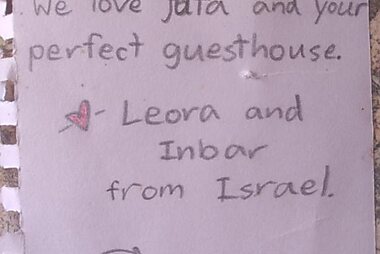 We love Jafa and your
perfect guesthouse.
- Leora and
Inbar
from Israel.